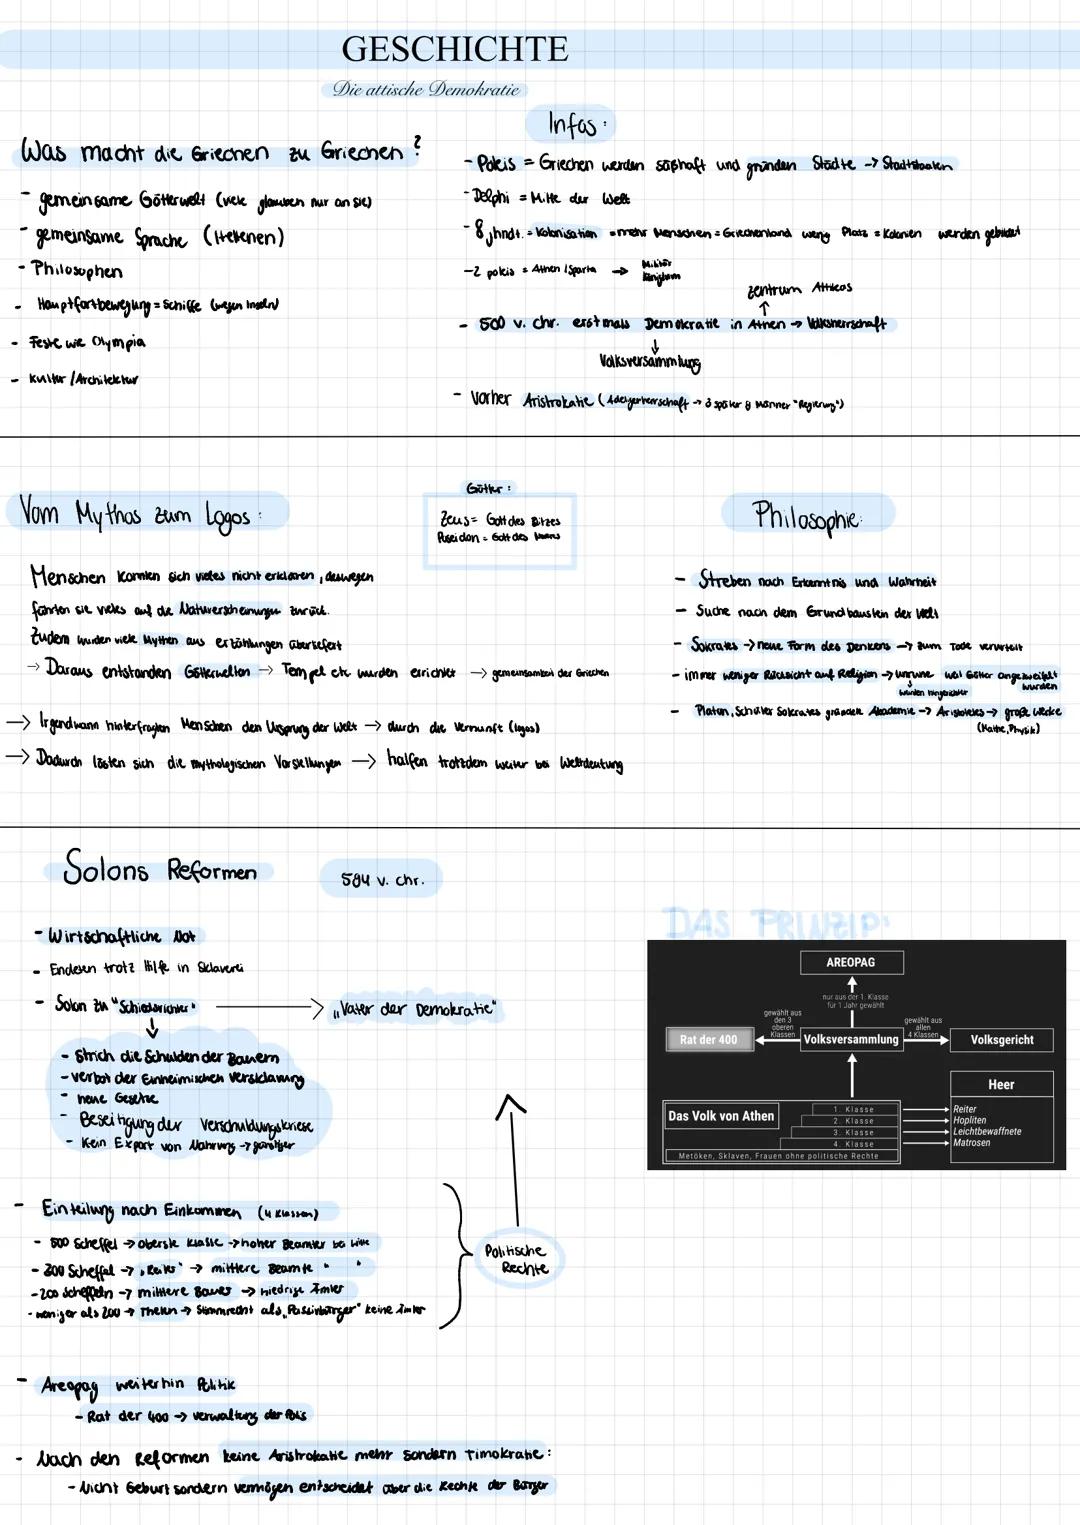 GESCHICHTE
Die attische Demokratie
Was macht die Griechen zu Griechen?
- gemeinsame Götterwelt (viele glauben nur an sie)
- gemeinsame Sprache (Hellenen)
- Philosophen
- Hauptfortbewegung = Schiffe (wegen Inseln)
- Feste wie Olympia
- Kultur / Architektur
Infos:
- Poleis = Griechen werden säßhaft und gründen Städte -> Stadtstaaten
- Delphi = Mitte der Welt
- 8 jhndt. = Kolonisation = mehr Menschen = Griechenland wenig Platz = Kolonien werden gebildet
- 2 poleis = Athen / Sparta ->
Militär
Königtum
Zentrum Attikas
- 500 v. chr. erstmals Demokratie in Athen -> Volksherrschaft
Volksversammlung
- Vorher Aristrokatie ( -> 3 später 9 Männer "Regierung")
Vom Mythos zum Logos:
Menschen konnten sich vieles nicht erklären, deswegen
führten sie vieles auf die Naturerscheinungen zurück.
Zudem wurden viele Mythen aus erzählungen überliefert
-> Daraus entstanden Götterwelten -> Tempel etc wurden errichtet -> gemeinsamkeit der Griechen
-> Irgendwann hinterfragten Menschen den Ursprung der Welt -> durch die Vernunft (logos)
-> Dadurch lösten sich die mythologischen Vorstellungen -> halfen trotzdem weiter bei Weltdeutung
Götter:
Zeus = Gott des Blitzes
Poseidon = Gott des Meeres
Philosophie:
- Streben nach Erkenntnis und Wahrheit
- Suche nach dem Grundbaustein der Welt
- Sokrates -> neue Form des Denkens -> zum Tode verurteilt
- immer weniger Rücksicht auf Religion -> unruhe weil Götter angezweifelt
wurden
wurden hingerichtet
- Platon, Schüler Sokrates gründete Akademie -> Aristoteles -> große Werke
(Mathe, Physik)
Solons Reformen
594 v. chr.
- Wirtschaftliche Not
- Endeten trotz Hilfe in Sklaverei
- Solon zu "Schiedsrichter" -> "Vater der Demokratie"
- Strich die Schulden der Bauern
- verbot der Einheimischen Versklavung
- neue Gesetze
- Beseitigung der Verschuldungskriese
- Kein Export von Nahrung -> günstiger
- Einteilung nach Einkommen (4 Klassen)
- 500 Scheffel -> oberste Klasse -> hoher Beamter
- 300 Scheffel -> "Reiter" -> mittlere Beamte " "
- 200 Scheffeln -> mittlere Bauer -> niedrige Ämter
- weniger als 200 -> Theten -> Stimmrecht als "Passivbürger" keine Ämter
Politische
Rechte
- Areopag weiterhin Politik
- Rat der 400 -> verwaltung der Polis
- Nach den Reformen keine Aristrokatie mehr sondern Timokratie:
- Nicht Geburt sondern vermögen entscheidet über die Rechte der Bürger
DAS PRINZIP:
AREOPAG
nur aus der 1. Klasse
für 1 Jahr gewählt
gewählt aus
den 3
oberen
Klassen
gewählt aus
allen
4 Klassen
Rat der 400
Volksversammlung
Volksgericht
Heer
Das Volk von Athen
1. Klasse
2. Klasse
3. Klasse
4. Klasse
Reiter
Hopliten
Leichtbewaffnete
Matrosen
Metöken, Sklaven, Frauen ohne politische Rechte